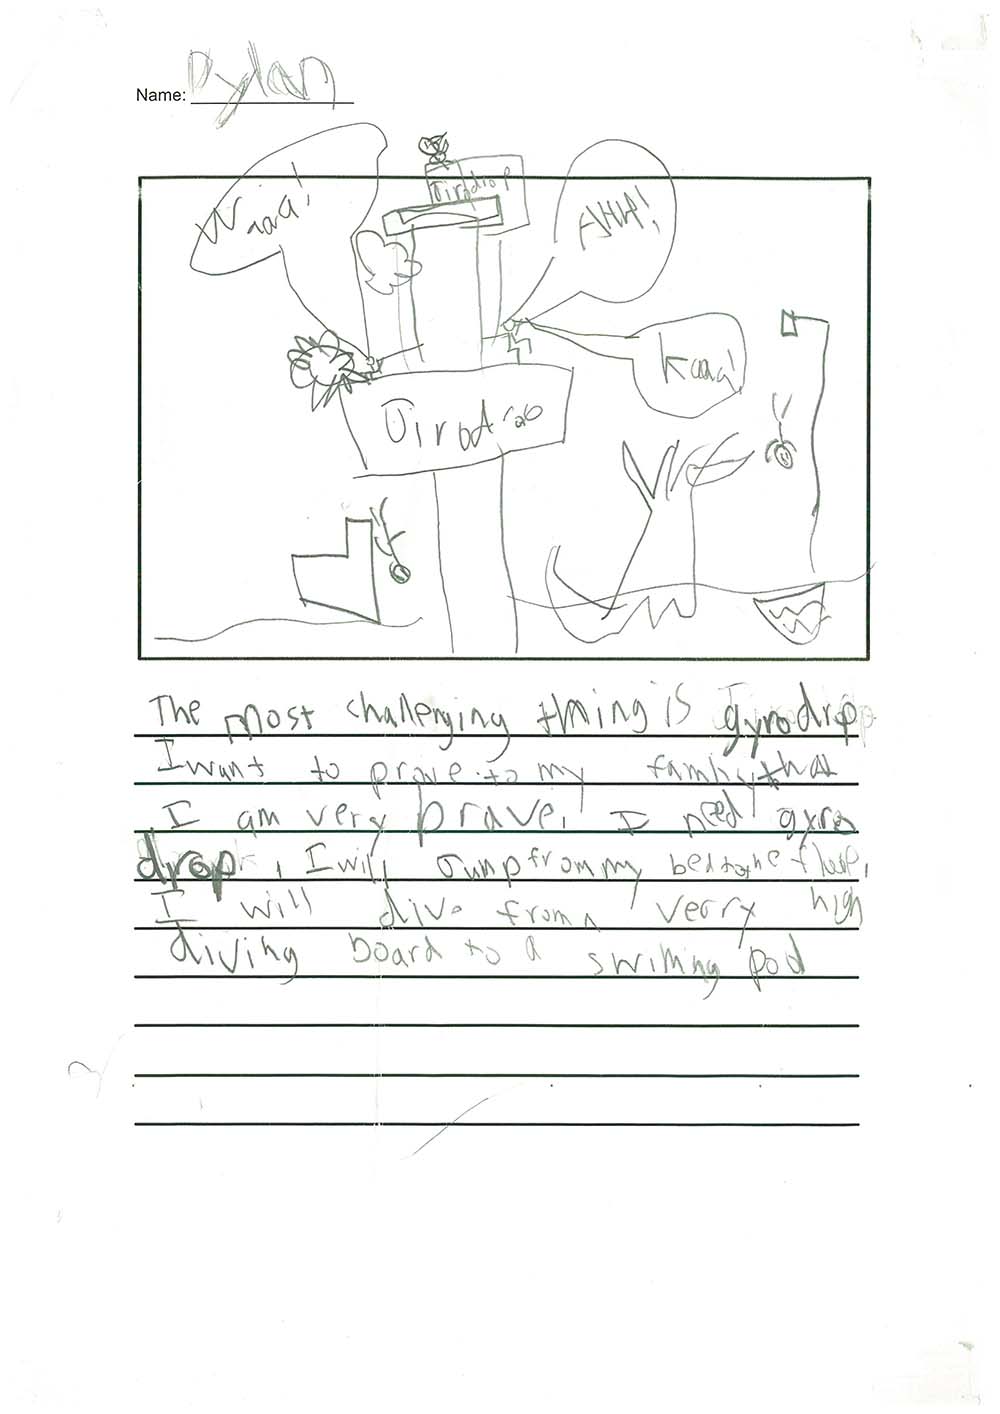 Name: Dylan
Jirodrop
Waaa!
AHH!
kaaa!
Jirodrob
The most challenging thing is gyrodrop
I want to prove to my family that
I am very brave. I need gyro
drop, I will Jump from my bed to the
I will dive from verry high
diving board to a swiming